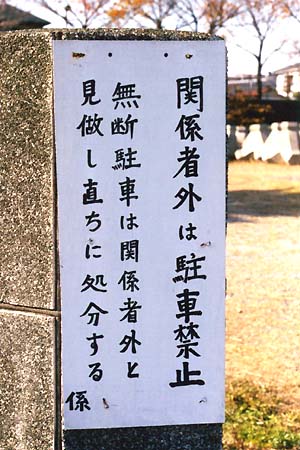 関係者外は駐車禁止
無断駐車は関係者外と
見做し直ちに処分する
係